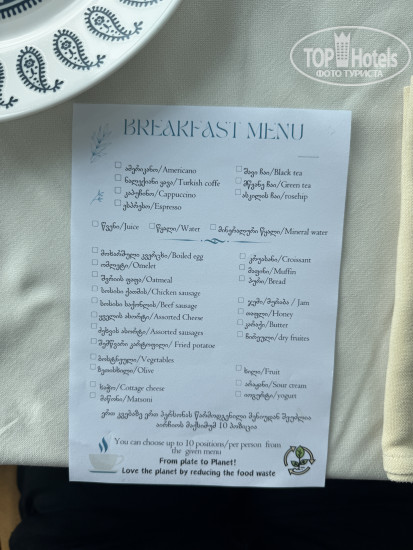 TOP Hotels
ФОТО ТУРИСТА
BREAKFAST MENU
ამერიკანო/Americano
ნალექიანი ყავა/Turkish coffe
კაპუჩინო/Cappuccino
ესპრესო/Espresso
შავი ჩაი/Black tea
მწვანე ჩაი/Green tea
ასკილის ჩაი/rosehip
წვენი/Juice წყალი/Water მინერალური წყალი/Mineral water
მოხარშული კვერცხი/Boiled egg
ომლეტი/Omelet
შვრიის ფაფა/Oatmeal
სოსისი ქათმის/Chicken sausage
სოსისი საქონლის/Beef sausage
ყველის ასორტი/Assorted Cheese
ძეხვის ასორტი/Assorted sausages
შემწვარი კარტოფილი/ Fried potatoe
ბოსტნეული/Vegetables
ზეთისხილი/Olive
ხაჭო/Cottage cheese
მაწონი/Matsoni
კრუასანი/Croissant
მაფინი/Muffin
პური/Bread
ჯემი/მურაბა / Jam
თაფლი/Honey
კარაქი/Butter
ჩირეული/dry fruites
ხილი/Fruit
არაჟანი/Sour cream
იოგურტი/yogurt
ერთ კვებაზე ერთ პერსონას წარმოდგენილი მენიუდან შეუძლია
აირჩიოს მაქსიმუმ 10 პოზიცია
You can choose up to 10 positions/per person from
the given menu
From plate to Planet!
Love the planet by reducing the food waste